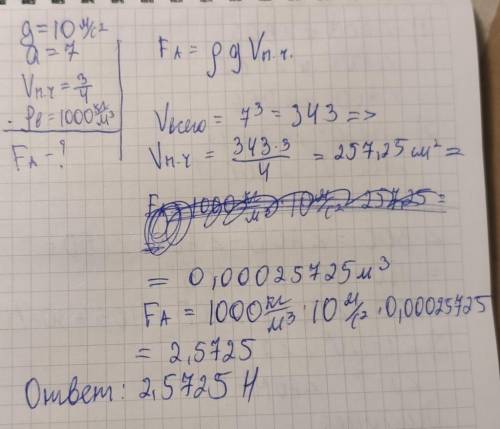 g = 10 м/с²
a = 7
Vп.ч = 3/4
ρв = 1000 кг/м³
FA - ?
FA = ρ g Vп.ч.
Vвсего = 7³ = 343 =>
Vп.ч = 343·3/4 = 257,25 см² =
= 0,00025725 м³
FA = 1000 кг/м³ · 10 м/с² · 0,00025725
= 2,5725
Ответ: 2,5725 Н